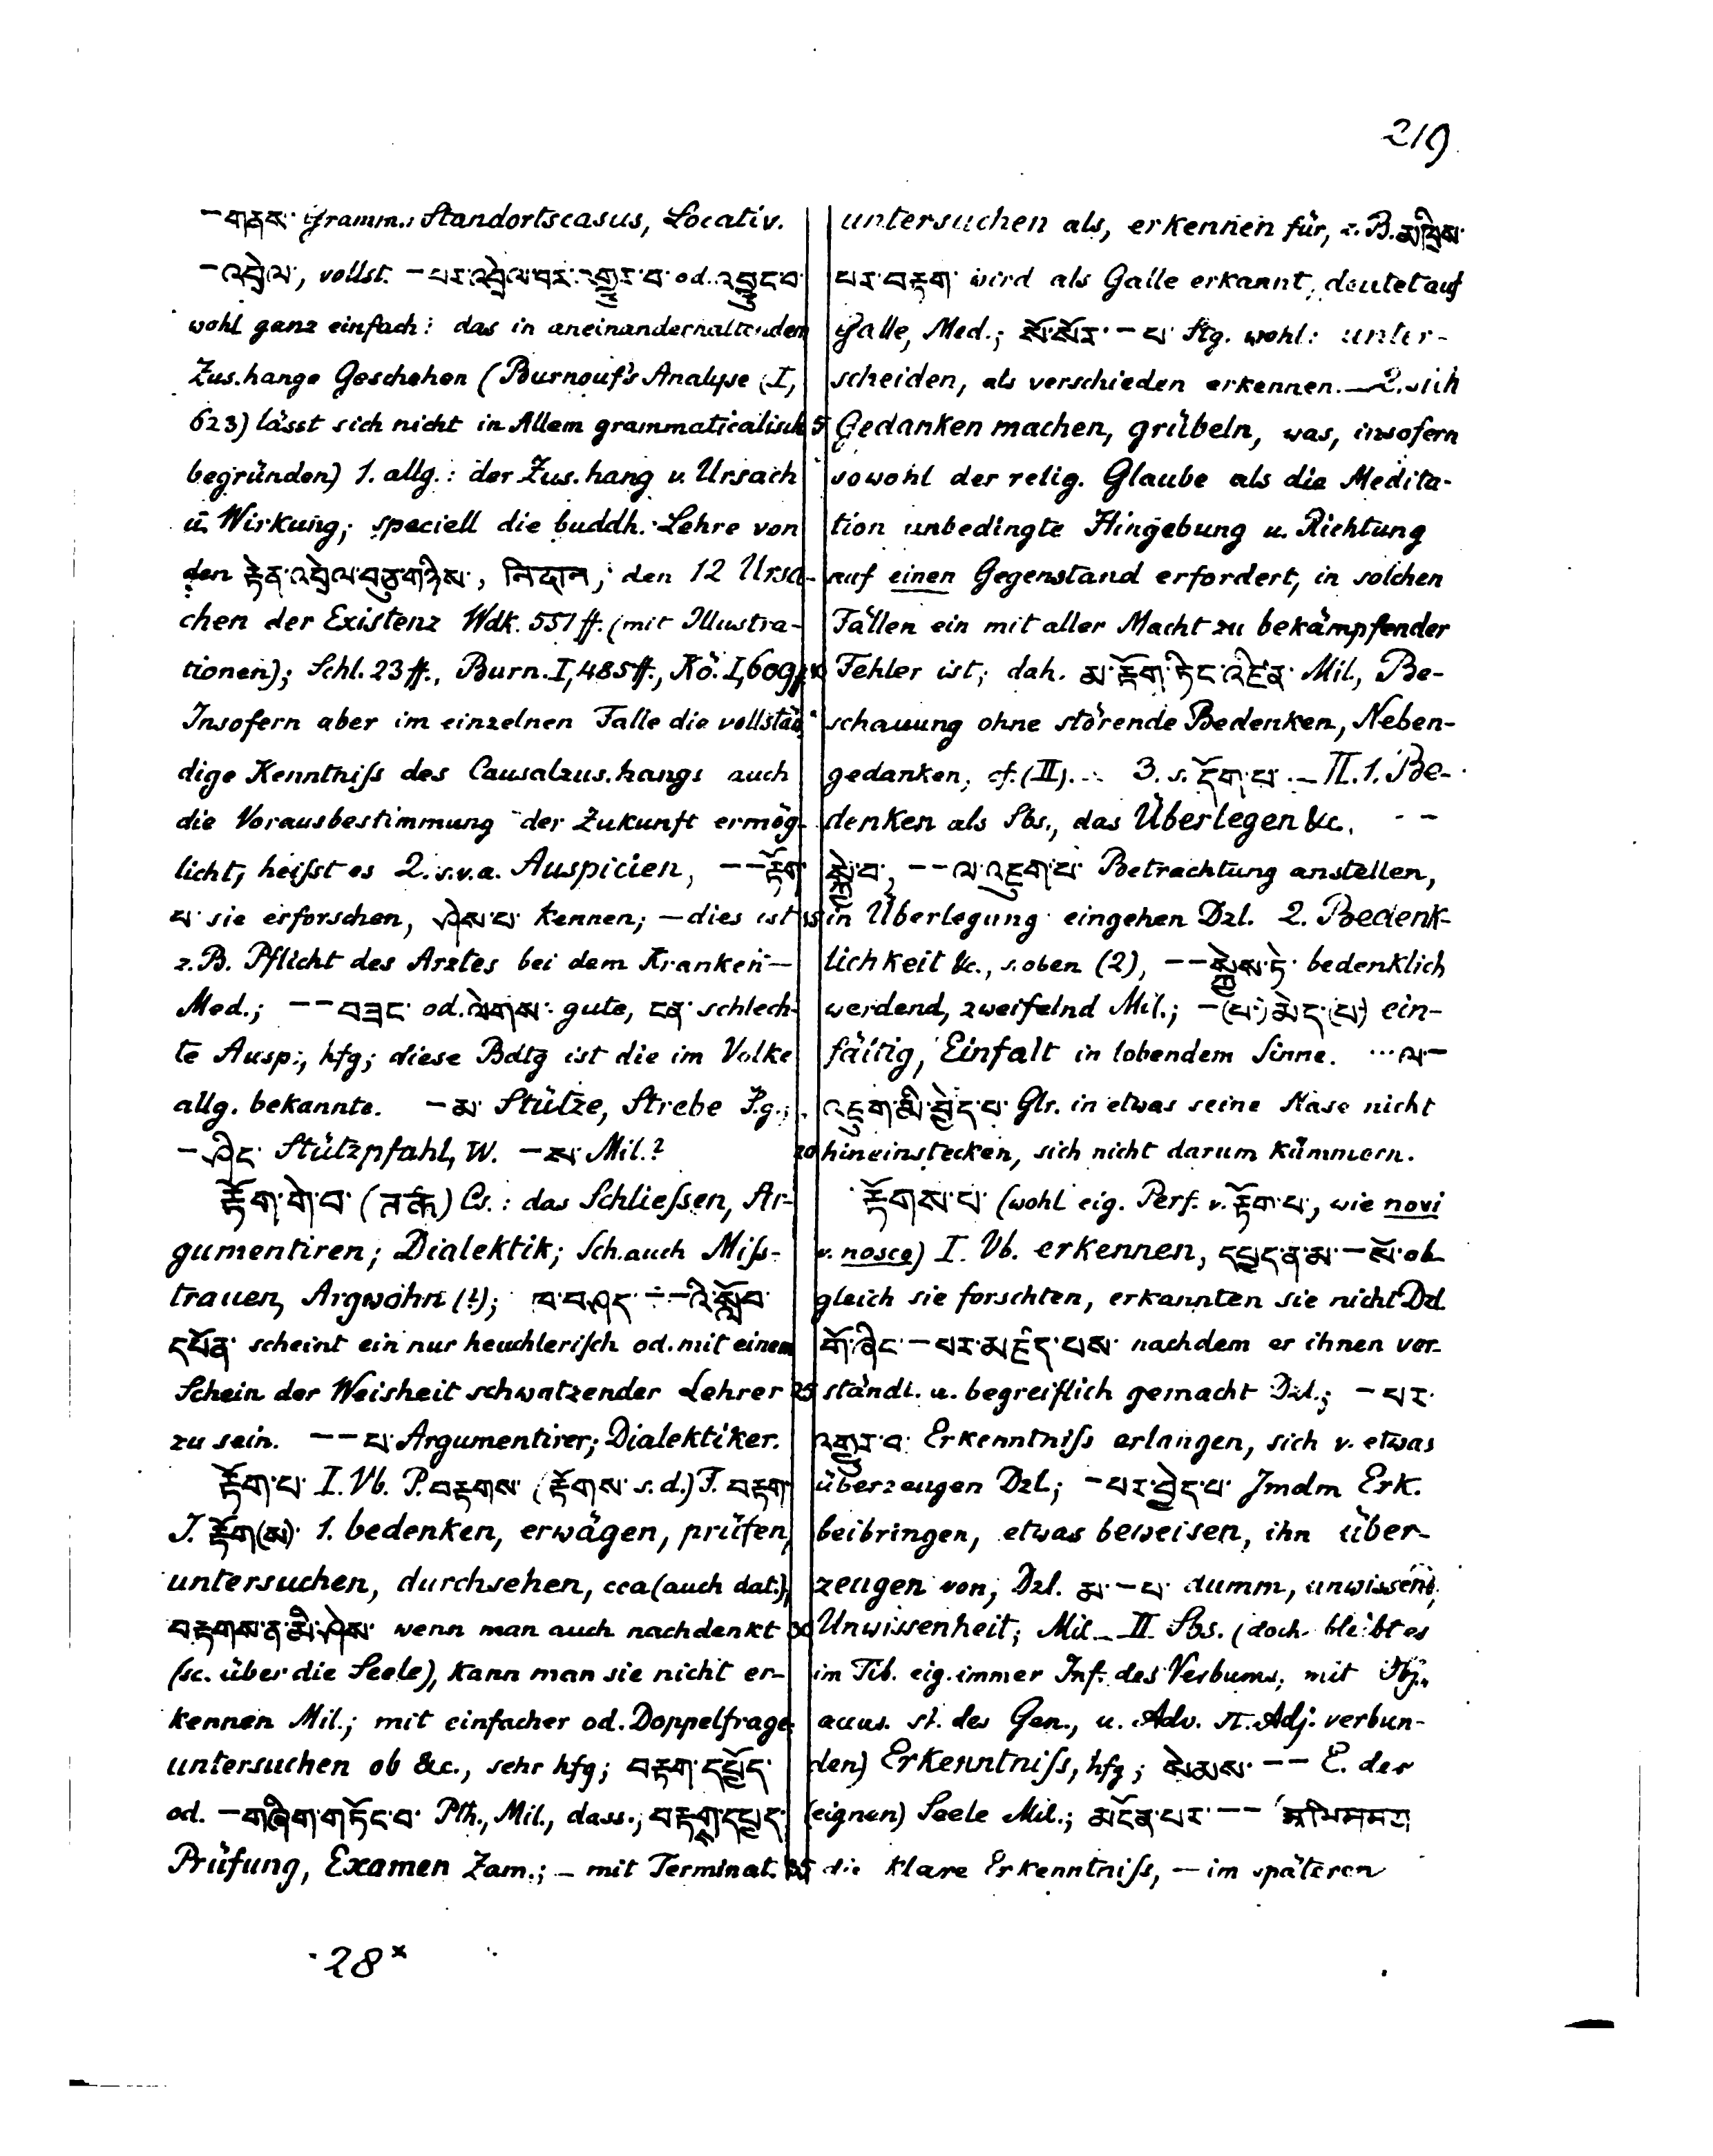 219
–གནས་ Gramm.: Standortscasus, Locativ.
–འབྲེལ་, vollst. –པར་འབྲེལ་བར་འགྱུར་བ་ od. འབྱུང་བ་
wohl ganz einfach: das in aneinanderhaltendem
Zus.hange Geschehen (Burnouf's Analyse (I,
623) lässt sich nicht in Allem grammaticalisch 5
begründen) 1. allg.: der Zus.hang v. Ursach
u. Wirkung; speciell die buddh. Lehre von
den རྟེན་འབྲེལ་བཅུ་གཉིས་, निदान, den 12 Ursa-
chen der Existenz Wdk. 551 ff. (mit Illustra-
tionen); Schl. 23 ff., Burn. I, 485 ff., Kö. I, 609; 10
Insofern aber im einzelnen Falle die vollstän-
dige Kenntniſs des Causalzus.hangs auch
die Vorausbestimmung der Zukunft ermög-
licht, heiſst es 2. s.v.a. Auspicien, –– རྟོག་
པ་ sie erforschen, ཤེས་པ་ kennen; – dies ist 15
z.B. Pflicht des Arztes bei dem Kranken –
Med.; –– བཟང་ od. ལེགས་ gute, ངན་ schlech-
te Ausp., hfg; diese Bdtg ist die im Volke
allg. bekannte. – མ་ Stütze, Strebe Pg.;
– ཤིང་ Stützpfahl, W. – ས་ Mil.? 20
རྟོག་གེ་བ་ (तर्क) Cs.: das Schlieſsen, Ar-
gumentiren; Dialektik; Sch. auch Miſs-
trauen, Argwohn (?); ཁ་བཤད་ –– འི་སློབ་
དཔོན་ scheint ein nur heuchleriſch od. mit einem
Schein der Weisheit schwatzender Lehrer 25
zu sein. –– པ་ Argumentirer; Dialektiker.
རྟོག་པ་ I. Vb. P. བརྟགས་ (རྟོགས་ s.d.) F. བརྟག་
J. རྟོག(ས)་ 1. bedenken, erwägen, prüfen,
untersuchen, durchsehen, cca (auch dat.),
བརྟགས་ན་མི་ཤེས་ wenn man auch nachdenkt 30
(sc. über die Seele), kann man sie nicht er-
kennen Mil.; mit einfacher od. Doppelfrage
untersuchen ob &c., sehr hfg; བརྟག་དཔྱོད་
od. – གཞིག་གཏོང་བ་ Pth., Mil., dass.; བརྟག་དཔྱད་
Prüfung, Examen Zam.; – mit Terminat. 35
untersuchen als, erkennen für, z.B. མཁྲིས་
པར་བརྟག་ wird als Galle erkannt, deutet auf
Galle, Med.; སོ་སོར་ – པ་ Stg. wohl: unter-
scheiden, als verschieden erkennen. – 2. sich
Gedanken machen, grübeln, was, insofern
sowohl der relig. Glaube als die Medita-
tion unbedingte Hingebung u. Richtung
auf einen Gegenstand erfordert, in solchen
Fällen ein mit aller Macht zu bekämpfender
Fehler ist; dah. མ་རྟོག་ཏིང་འཛིན་ Mil., Be-
schauung ohne störende Bedenken, Neben-
gedanken, cf. (II). – 3. s. དོག་པ་. – II. 1. Be-
denken als Sbs., das Überlegen &c. ––
སྐྱེ་བ་, –– ལ་འཇུག་པ་ Betrachtung anstellen,
in Überlegung eingehen Dzl. 2. Bedenk-
lichkeit &c., s. oben (2), –– སྐྱེས་ཏེ་ bedenklich
werdend, zweifelnd Mil.; – (པ་) མེད་(པ་) ein-
fältig, Einfalt in lobendem Sinne. ... ལ་ –
འཇུག་མི་བྱེད་པ་ Glr. in etwas seine Nase nicht
hineinstecken, sich nicht darum kümmern.
རྟོགས་པ་ (wohl eig. Perf. v. རྟོག་པ་, wie novi
v. nosco) I. Vb. erkennen, དཔྱད་ན་མ་ – སོ་ ob
gleich sie forschten, erkannten sie nicht Dzl.
གོ་ཞིང་ – པར་མཛད་པས་ nachdem er ihnen ver-
ständl. u. begreiflich gemacht Dzl.; – པར་
འགྱུར་བ་ Erkenntniſs erlangen, sich v. etwas
überzeugen Dzl.; – པར་བྱེད་པ་ Jmdm Erk.
beibringen, etwas beweisen, ihn über-
zeugen von, Dzl. མ་ – པ་ dumm, unwissend,
Unwissenheit; Mil. – II. Sbs. (doch bleibt es
im Tib. eig. immer Inf. des Verbums, mit Obj.,
accus. st. des Gen., u. Adv. st. Adj. verbun-
den) Erkenntniſs, hfg; སེམས་ –– E. der
(eignen) Seele Mil.; མངོན་པར་ ––
die klare Erkenntniſs, – im späteren
28*